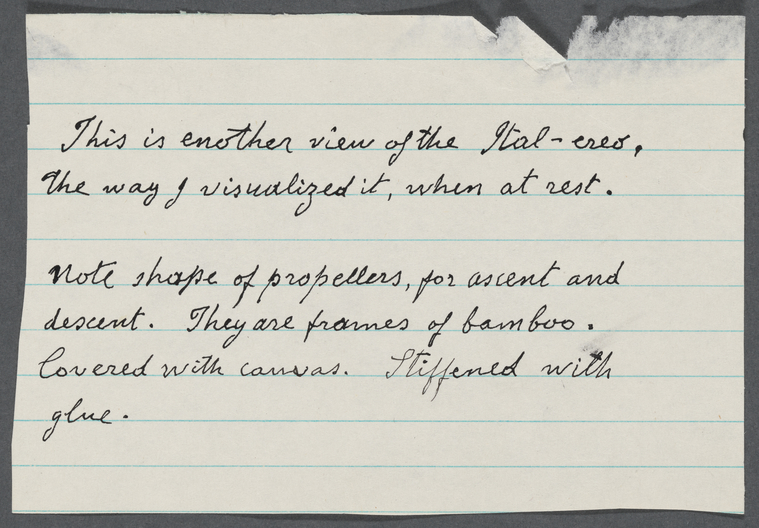 This is enother view of the Ital-ereo,
the way I visualized it, when at rest.
Note shape of propellers, for ascent and
descent. They are frames of bamboo.
Covered with canvas. Stiffened with
glue.